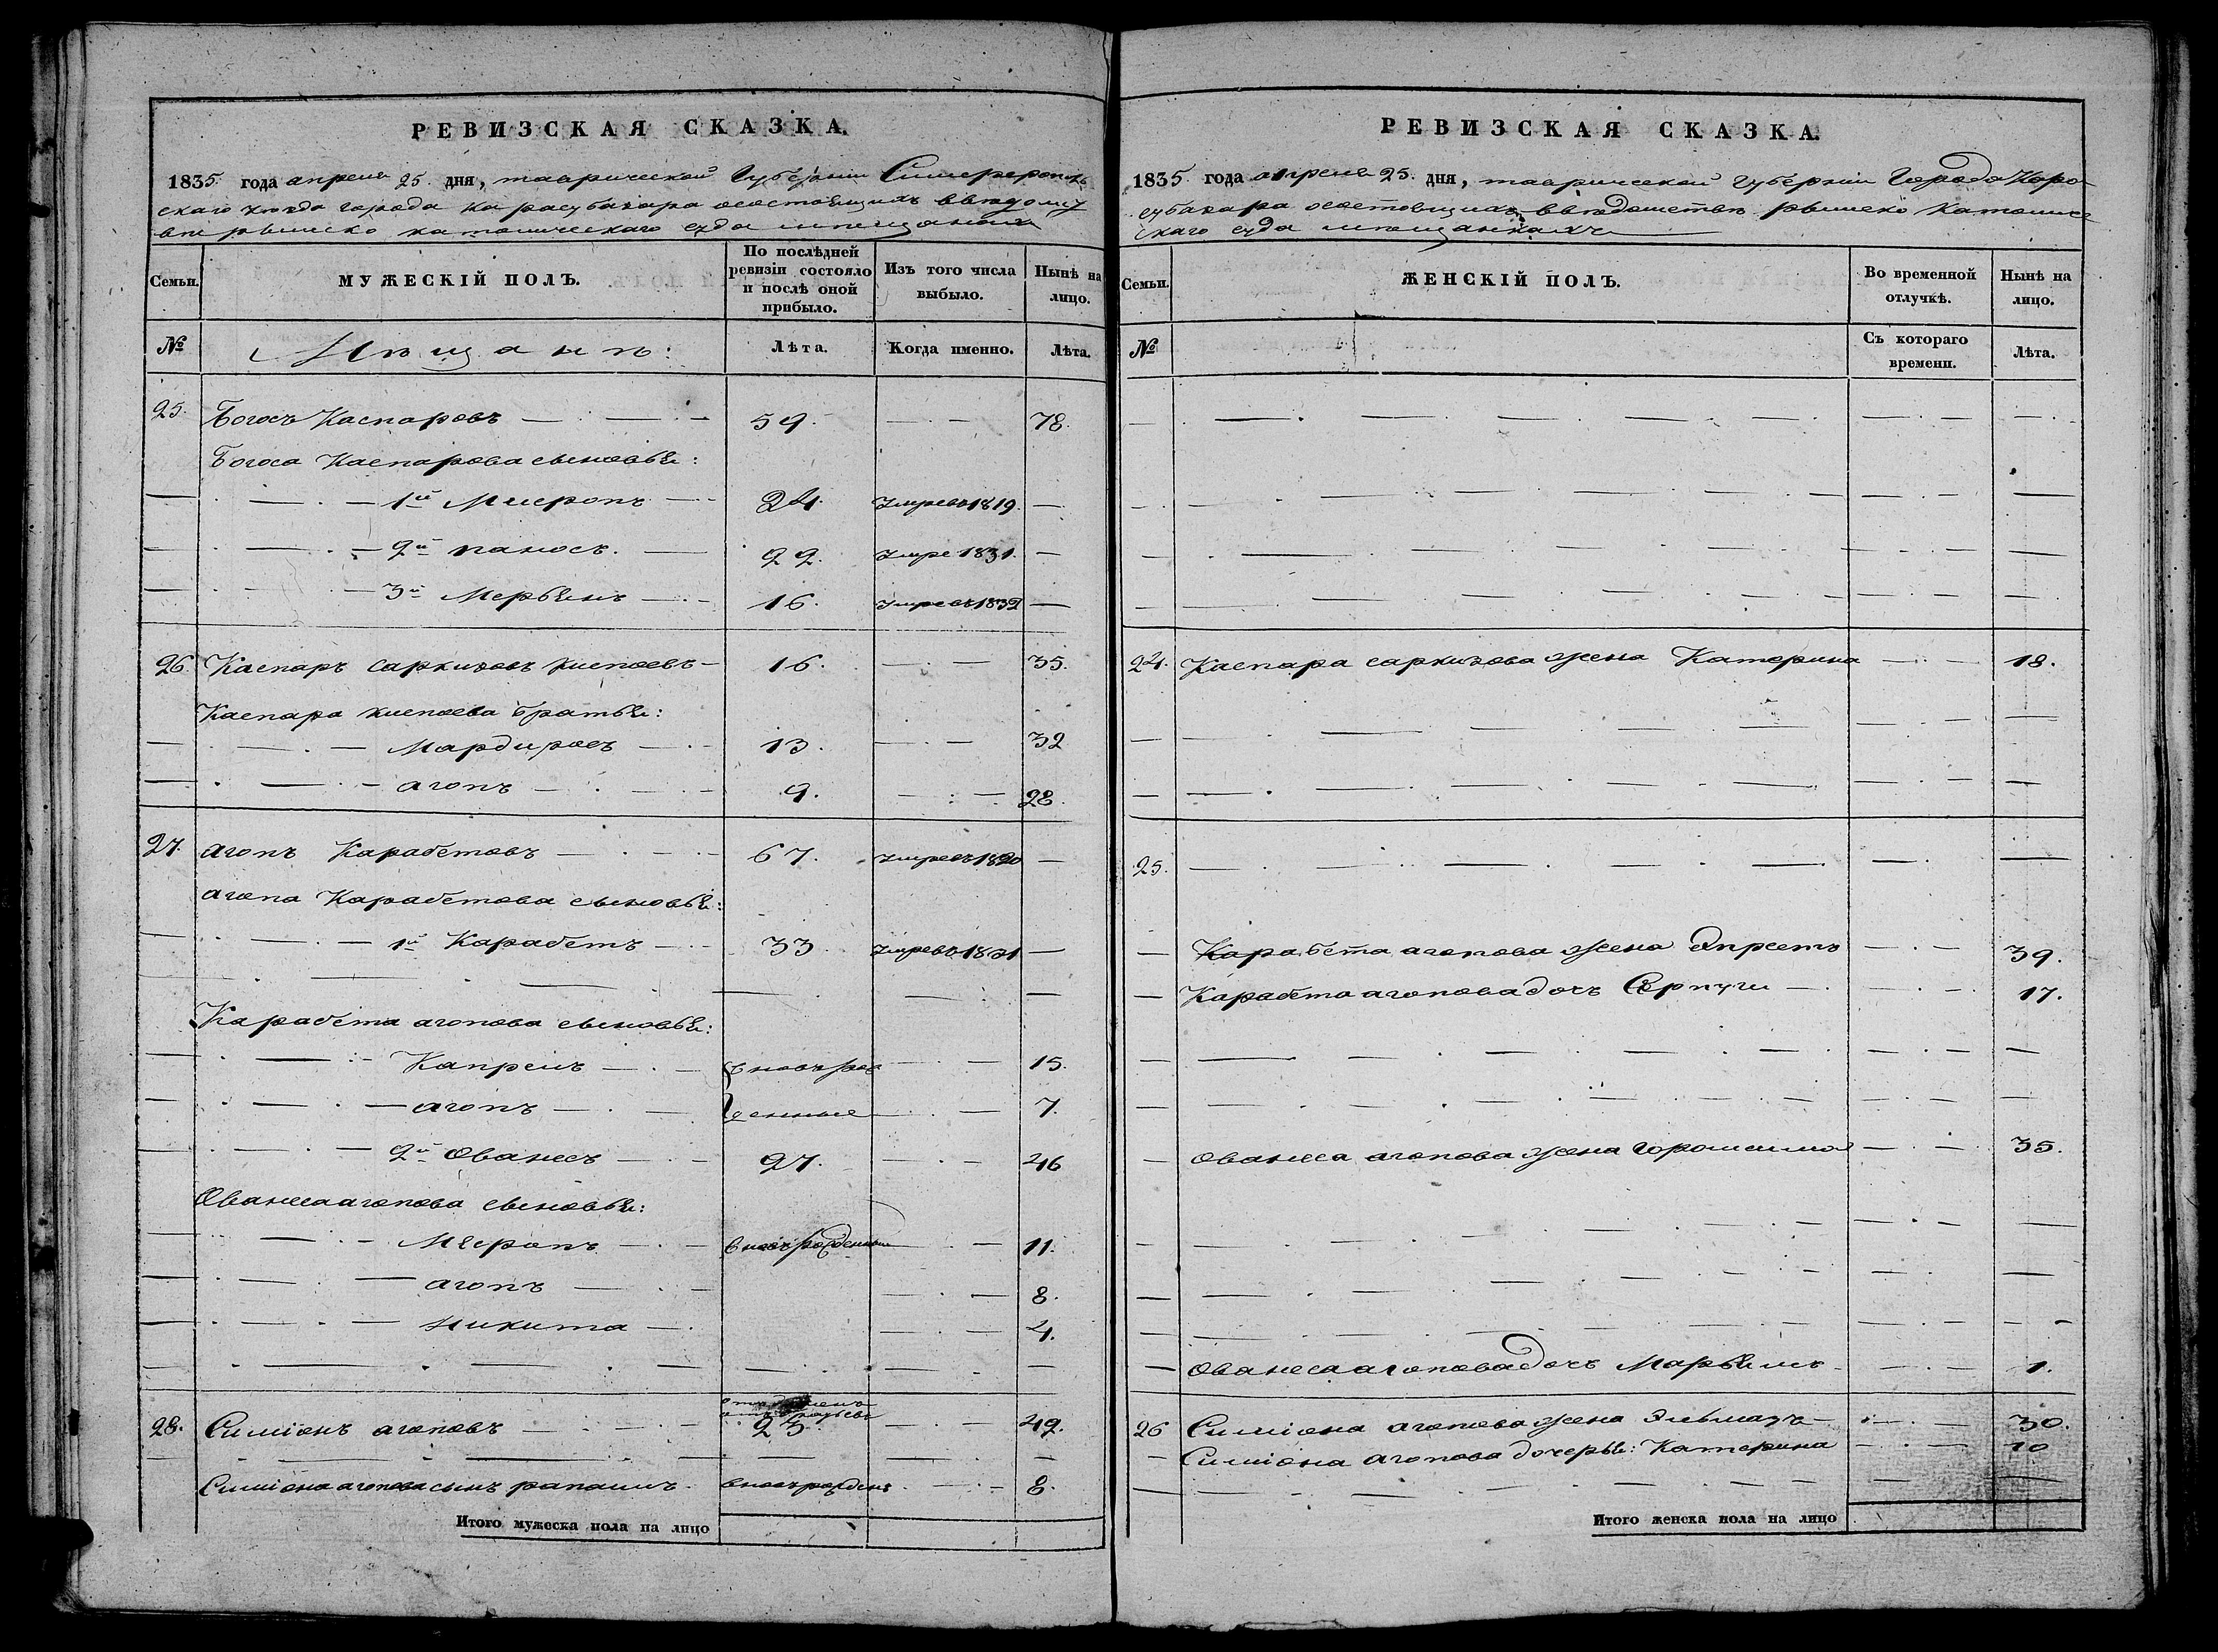 РЕВИЗСКАЯ СКАЗКА.
1835 года апреля 25 дня, таврической Губернiи Симферополь
скаго уезда города Карасубазара осостоящихъ введому
впе рымско католическаго суда мещанахъ
Семьи.
МУЖЕСКIЙ ПОЛЪ.
По послѣдней ревизiи состояло и послѣ оной прибыло.
Изъ того числа выбыло.
Нынѣ на лицо.
№
Мѣщанъ:
Лѣта.
Когда именно.
Лѣта.
25. Богосъ Каспаровъ 59. 78.
Богоса Каспарова сыновья:
1й Мисропъ 24. Умре въ 1819.
2й паносъ. 22. Умре 1831.
3й Мерьянъ 16. Умре въ 1832
26. Каспаръ саркизовъ киспоевъ 16. 35.
Каспара киспоева братья:
Мардиросъ 13. 32
агопъ 9. 28.
27. агопъ Карабетовъ 67. умре въ 1820
агопа Карабетова сыновья:
1й Карабетъ 33 умре въ 1821
Карабета агопова сыновья:
Капрелъ вновь рож 15.
агопъ денные 7.
2й Ованесъ 27. 46
Ованеса агопова сыновья:
Мисропъ вновь рожденные 11.
агопъ 8.
никита 4.
28. Симiонъ агоповъ 23. 42.
Симiона агопова сынъ рапаилъ вновь рожденъ 8.
Итого мужеска пола на лицо
РЕВИЗСКАЯ СКАЗКА.
1835 года апреля 25. дня, таврической губернiи Города Кара
субазара осостоящихъ введомстве рымско католиче
скаго суда мещанкахъ
Семьи.
ЖЕНСКIЙ ПОЛЪ.
Во временной отлучкѣ.
Нынѣ на лицо.
№
Съ котораго времени.
Лѣта.
24. Каспара саркизова жена Катерина 18.
25.
Карабета агопова жена Епрсетъ 39.
Карабета агопова дочь Српуги 17.
Ованеса агопова жена горомсима 35.
Ованеса агопова дочь Марьямъ 1.
26 Симiона агопова жена Эльмазъ 30.
Симiона агопова дочерьи: Катерина 10
Итого женска пола на лицо